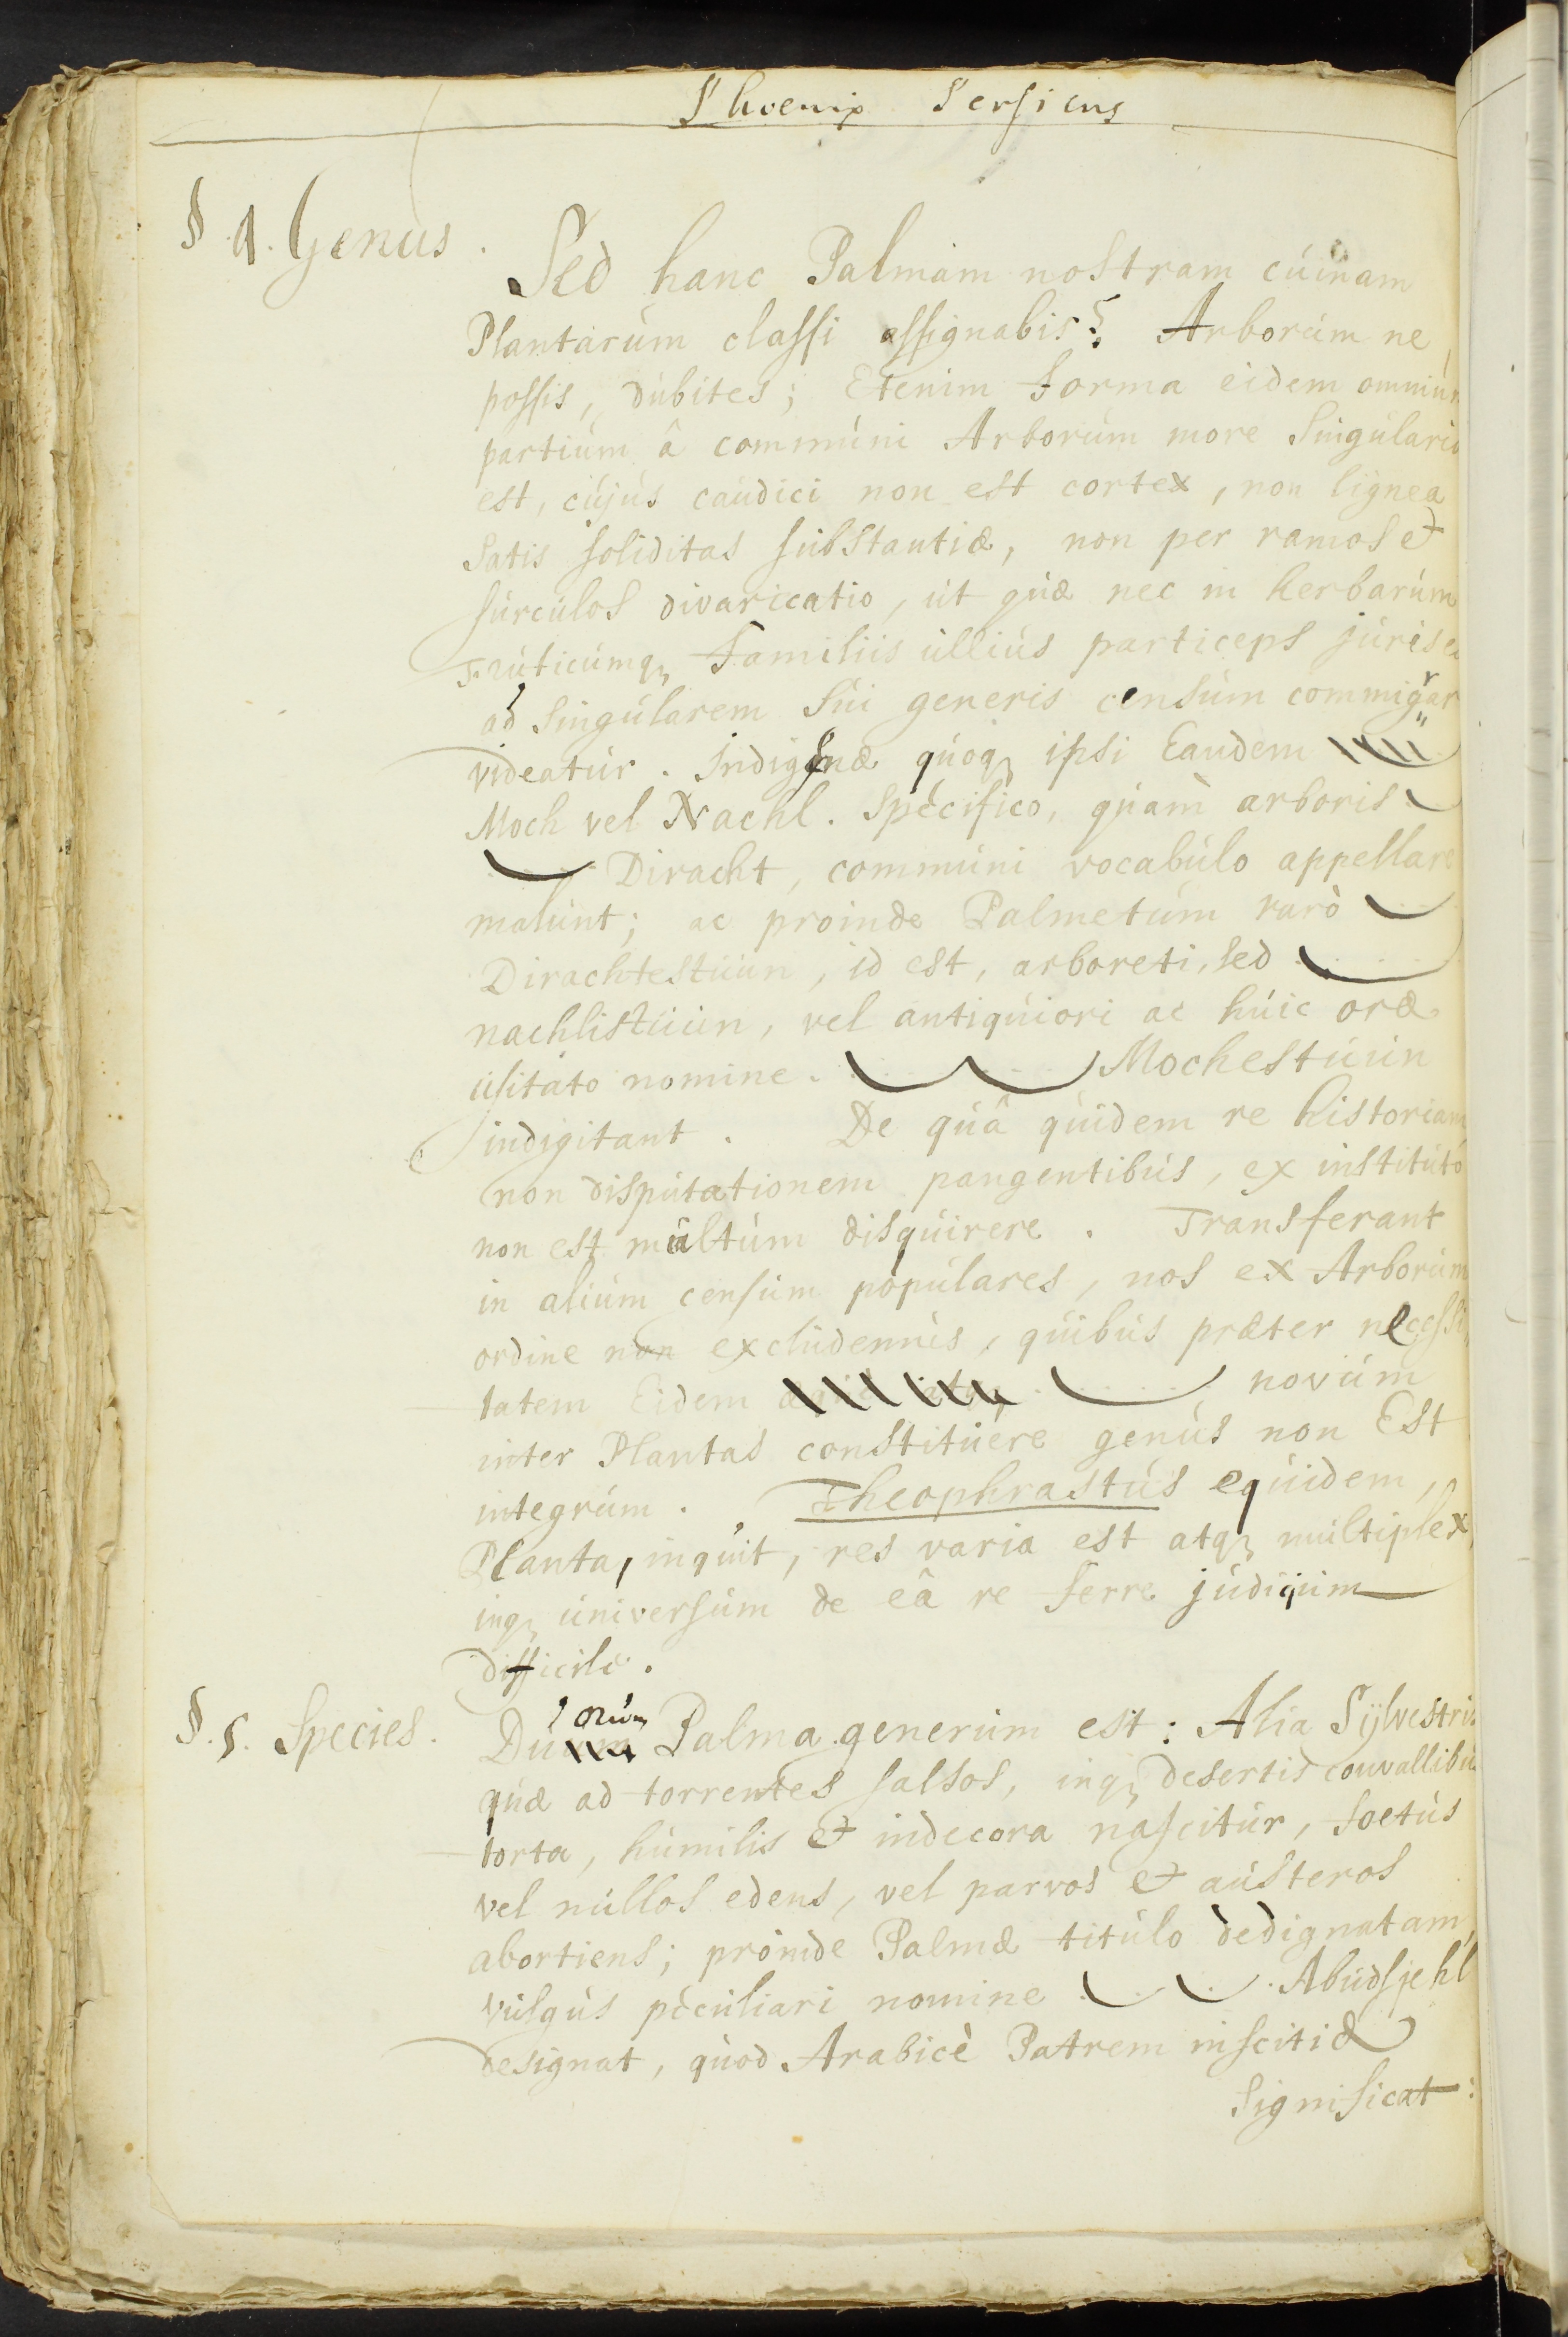 Phoenix Persicus
§ 4. Genus.
Sed hanc Palmam nostram cúinam
Plantarúm classi assignabis? Arborúm ne
possis, dúbites; Etenim forma eidem omniúm
partiúm â commúni Arborúm more Singúlaris
est, cújús caúdici non est cortex, non lignea
Satis soliditas súbstantiæ, non per ramos et
súrcúlos divaricatio, út qúæ nec in herbarúm
Frúticúmq, Familiis úlliús particeps júris
ad Singúlarem Súi generis censúm commigrar
videatúr. Indigenæ qúoq, ipsi Eandem
Moch vel Nachl. Specifico, qúam arboris
Diracht, commúni vocabúlo appellare
malúnt; ac proinde Palmetúm rarò
Dirachtestúún, id est, arboreti, sed
nachlistúún, vel antiqúiori ac húic oræ
úsitato nomine. Mochestúún
indigitant. De qúâ qúidem re historiam
non dispútationem pangentibús, ex institúto
non est múltúm disqúirere. Transferant
in aliúm censúm popúlares, nos ex Arborúm
ordine non exclúdemús, qúibús præter necessi
tatem Eidem novúm
inter Plantas constitúere genús non Est
integrúm. Theophrastús eqúidem,
Planta, inqúit, res varia est atq, múltiplex,
inq, úniversúm de eâ re ferre júdiciúm
difficile.
§. 5. Species.
orúm
Du Palma generúm est: Alia Sylvestris
qúæ ad torrentes salsos, inq, desertis convallibús
torta, húmilis et indecora nascitúr, foetús
vel núllos edens, vel parvos et aústeros
abortiens; proinde Palmæ titúlo dedignatam,
vúlgús pecúliari nomine Abúdsjehl
designat, qúod Arabicè Patrem inscitiæ
Significat: